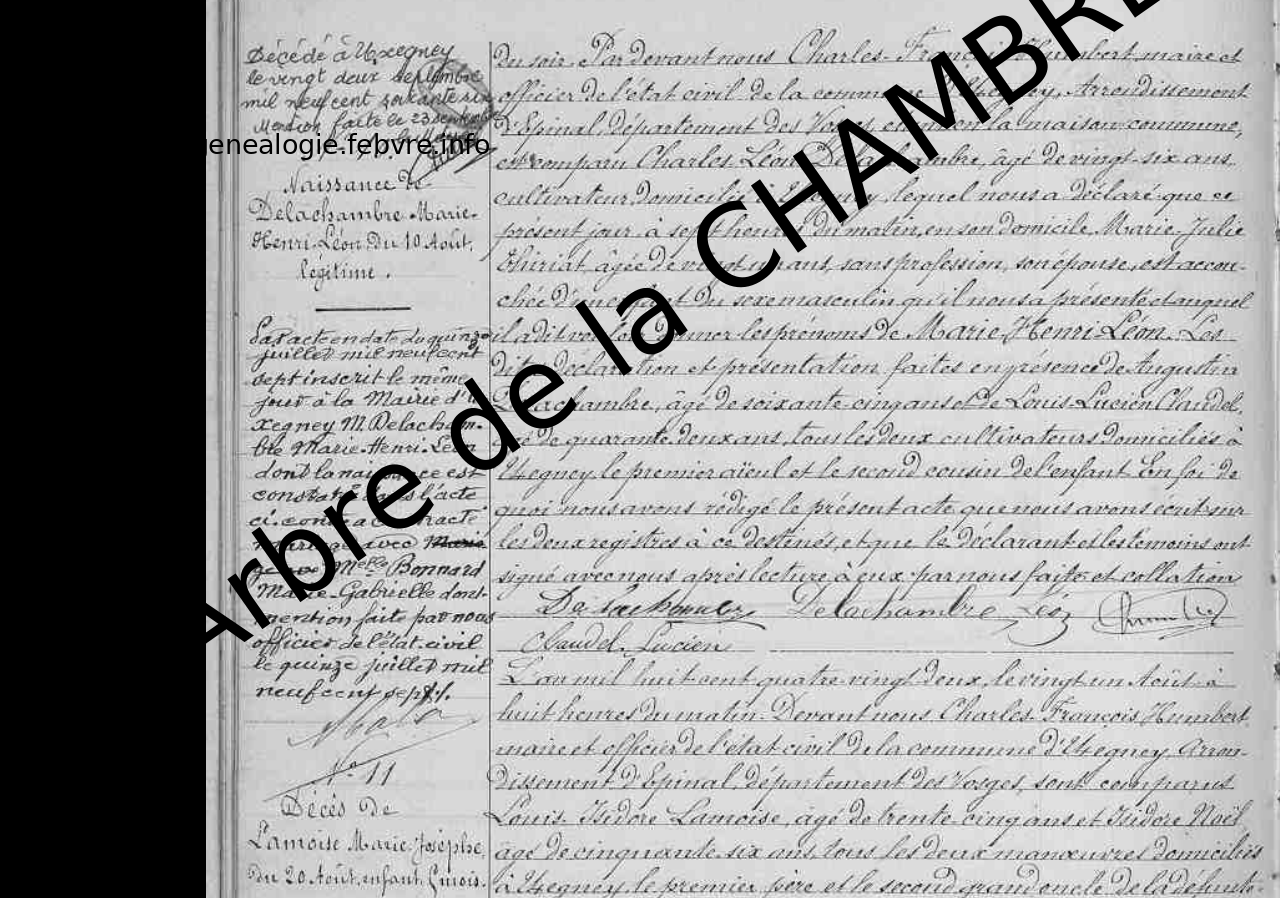 Décédé à Uxegney
le vingt deux septembre
mil neuf cent soixante six
Mention faite le 23 septembre
genealogie.febvre.info
Naissance de
Delachambre Marie-
Henri-Léon du 10 Août,
légitime.
Par acte en date du quinze
juillet mil neuf cent
sept inscrit le même
jour à la Mairie d'U
xegney M. Delacham-
bre Marie-Henri-Léon
dont la naissance est
constatée dans l'acte
ci-contre a contracté
mariage avec Marie
Melle Bonnard
Marie-Gabrielle dont
mention faite par nous
officier de l'état-civil
le quinze juillet mil
neuf cent sept.
N° 11
Décès de
Lamoise Marie-Josèphe,
du 20 Août, enfant, 5 mois.
du soir. Par devant nous Charles-François Humbert, maire et
officier de l'état civil de la commune d'Uxegney, Arrondissement
d'Epinal, Département des Vosges, et en la maison commune,
est comparu Charles-Léon Delachambre, âgé de vingt-six ans,
cultivateur, domicilié à Uxegney, lequel nous a déclaré que ce
présent jour, à sept heures du matin, en son domicile, Marie-Julie
Thiriat, âgée de vingt un ans, sans profession, son épouse, est accou-
chée d'un enfant du sexe masculin qu'il nous a présenté et auquel
il a dit vouloir donner les prénoms de Marie-Henri-Léon. Les
dites déclaration et présentation faites en présence de Augustin
Delachambre, âgé de soixante-cinq ans et de Louis-Lucien Claudel,
âgé de quarante-deux ans, tous les deux cultivateurs domiciliés à
Uxegney, le premier aïeul et le second cousin de l'enfant. En foi de
quoi nous avons rédigé le présent acte que nous avons écrit sur
les deux registres à ce destinés, et que le déclarant et les témoins ont
signé avec nous après lecture à eux par nous faite et collation
Delachambre Delachambre Léon
Claudel Lucien
L'an mil huit cent quatre-vingt-deux, le vingt un Août à
huit heures du matin. Devant nous Charles-François Humbert,
maire et officier de l'état civil de la commune d'Uxegney, Arron-
dissement d'Epinal, département des Vosges, sont comparus
Louis-Isidore Lamoise, âgé de trente-cinq ans et Isidore Noël
âgé de cinquante-six ans, tous les deux manœuvres domiciliés
à Uxegney, le premier père et le second grand oncle de la défunte.
Arbre de la CHAMBRE